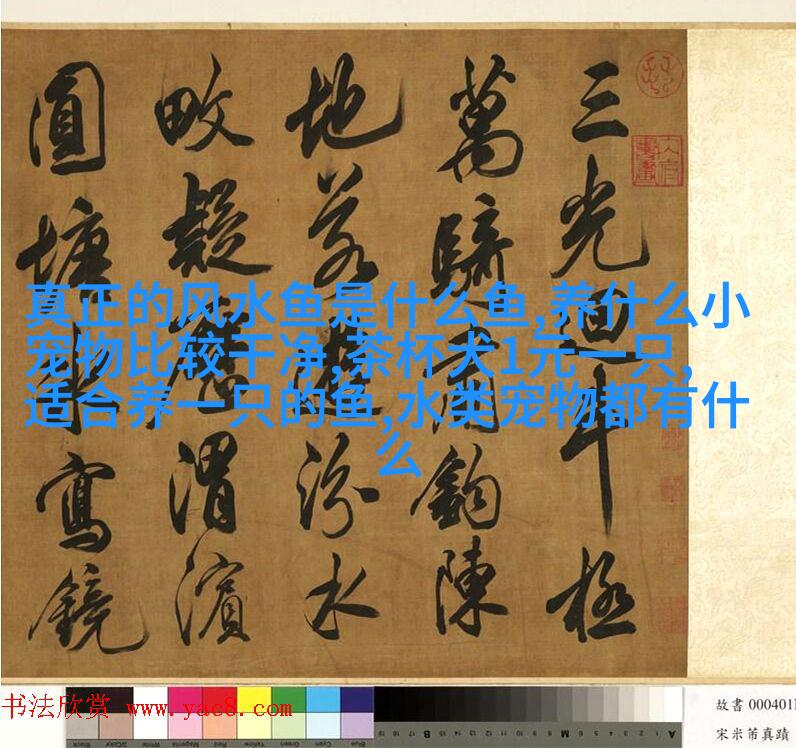 三光迴斗極
萬騎肅鉤陳
地若汾水
畋疑渭濱
圓塘冰寫鏡
真正的风水鱼是什么鱼,养什么小
宠物比较干净,茶杯犬1元一只,
适合养一只的鱼,水类宠物都有什
么
书法欣赏 www.yac8.com
故書 000401
宋米芾真蹟